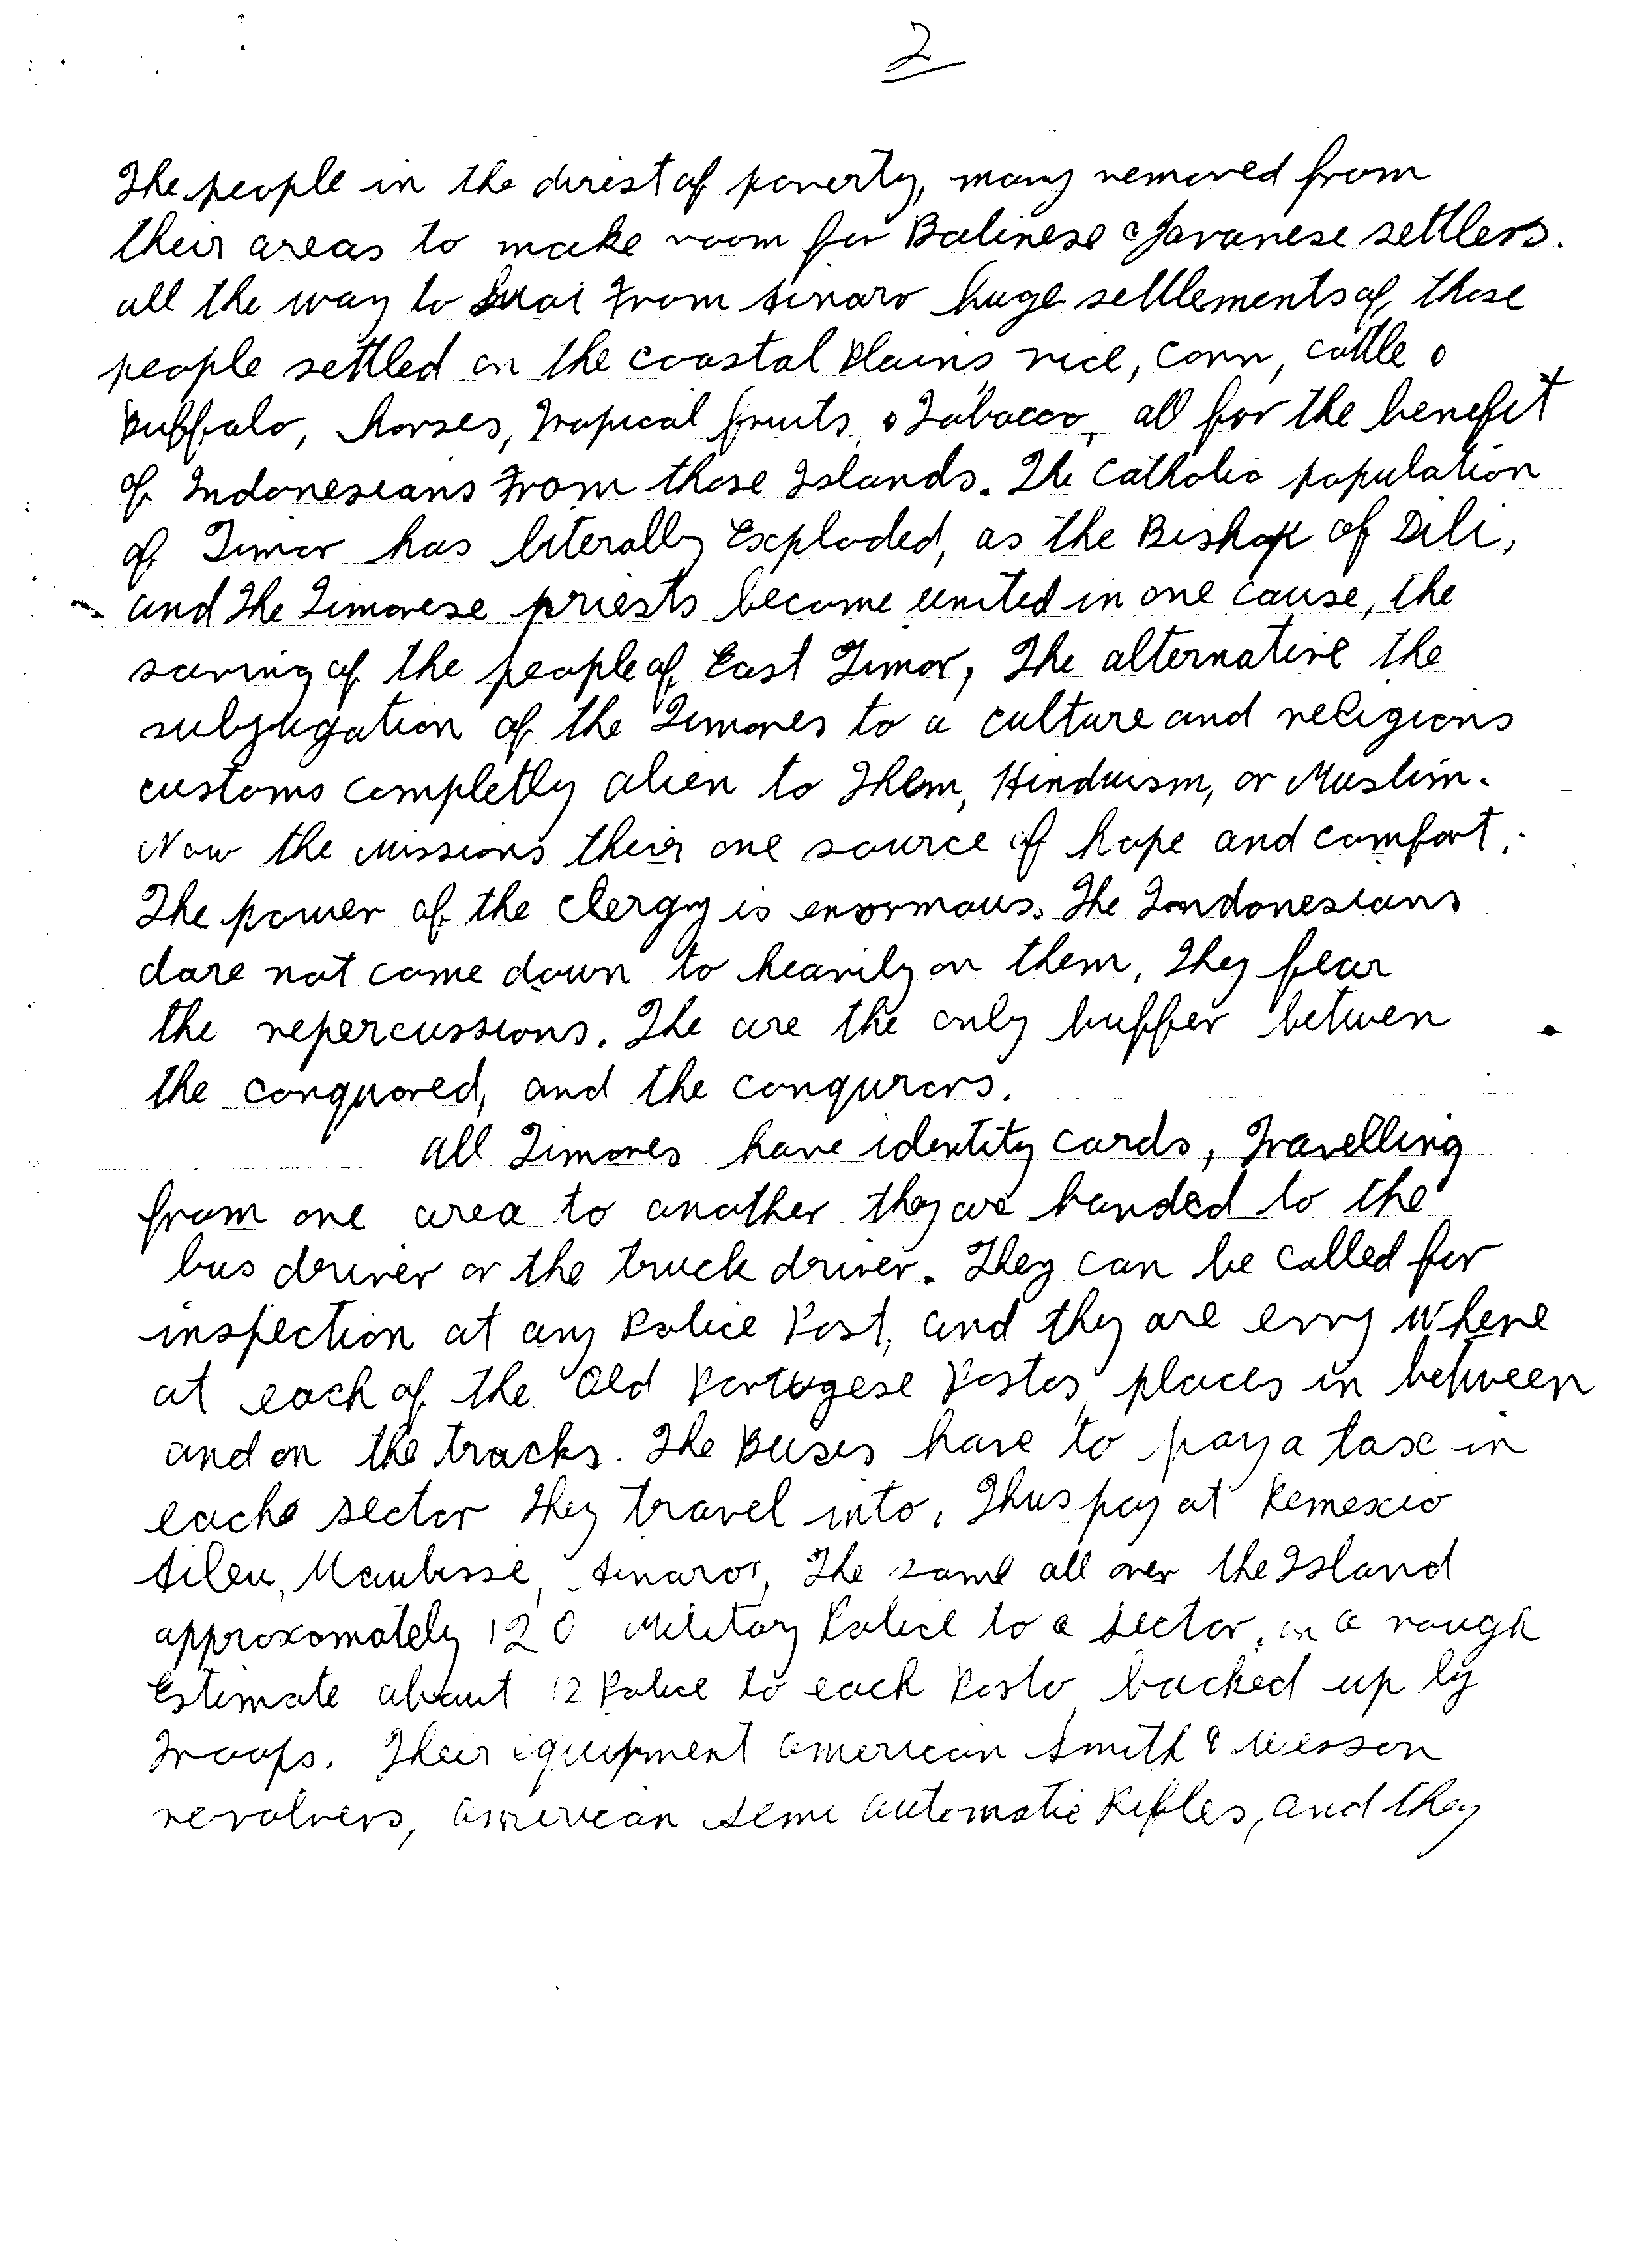 2
The people in the direst of poverty, many removed from
their areas to make room for Balinese & Javanese settlers.
all the way to Suai From Ainaro huge settlements of these
people settled on the coastal Plains, rice, corn, cattle &
Buffalo, horses, Tropical fruits, & Tobacco, all for the benefit
of Indonesians From those Islands. The Catholic population
of Timor has literally Exploded, as the Bishop of Dili,
and The Timorese priests become united in one cause, the
saving of the people of East Timor, The alternative the
subjugation of the Timores to a culture and religions
customs completly alien to Them, Hinduism, or Muslim.
Now the missions their one source of hope and comfort.
The power of the Clergy is enormous. The Indonesians
dare not come down to heavily on them, They fear
the repercussions. The are the only buffer betwen
the conquored, and the conqurors.
All Timores have identity cards, Travelling
from one area to another they are handed to the
bus driver or the truck driver. They can be called for
inspection at any Police Post, and they are evry where
at each of the Old Portugese Postos, places in between
and on the tracks. The Buses have to pay a tax in
each sector They travel into, Thus pay at Remexio
Aileu, Maubisse, Ainaro, The same all over the Island
approxomately 120 Military Police to a sector, on a rough
Estimate about 12 Police to each Posto, backed up by
Troops. Their equipment American Smith & Wesson
revolvers, American Semi Automatic Rifles, and they